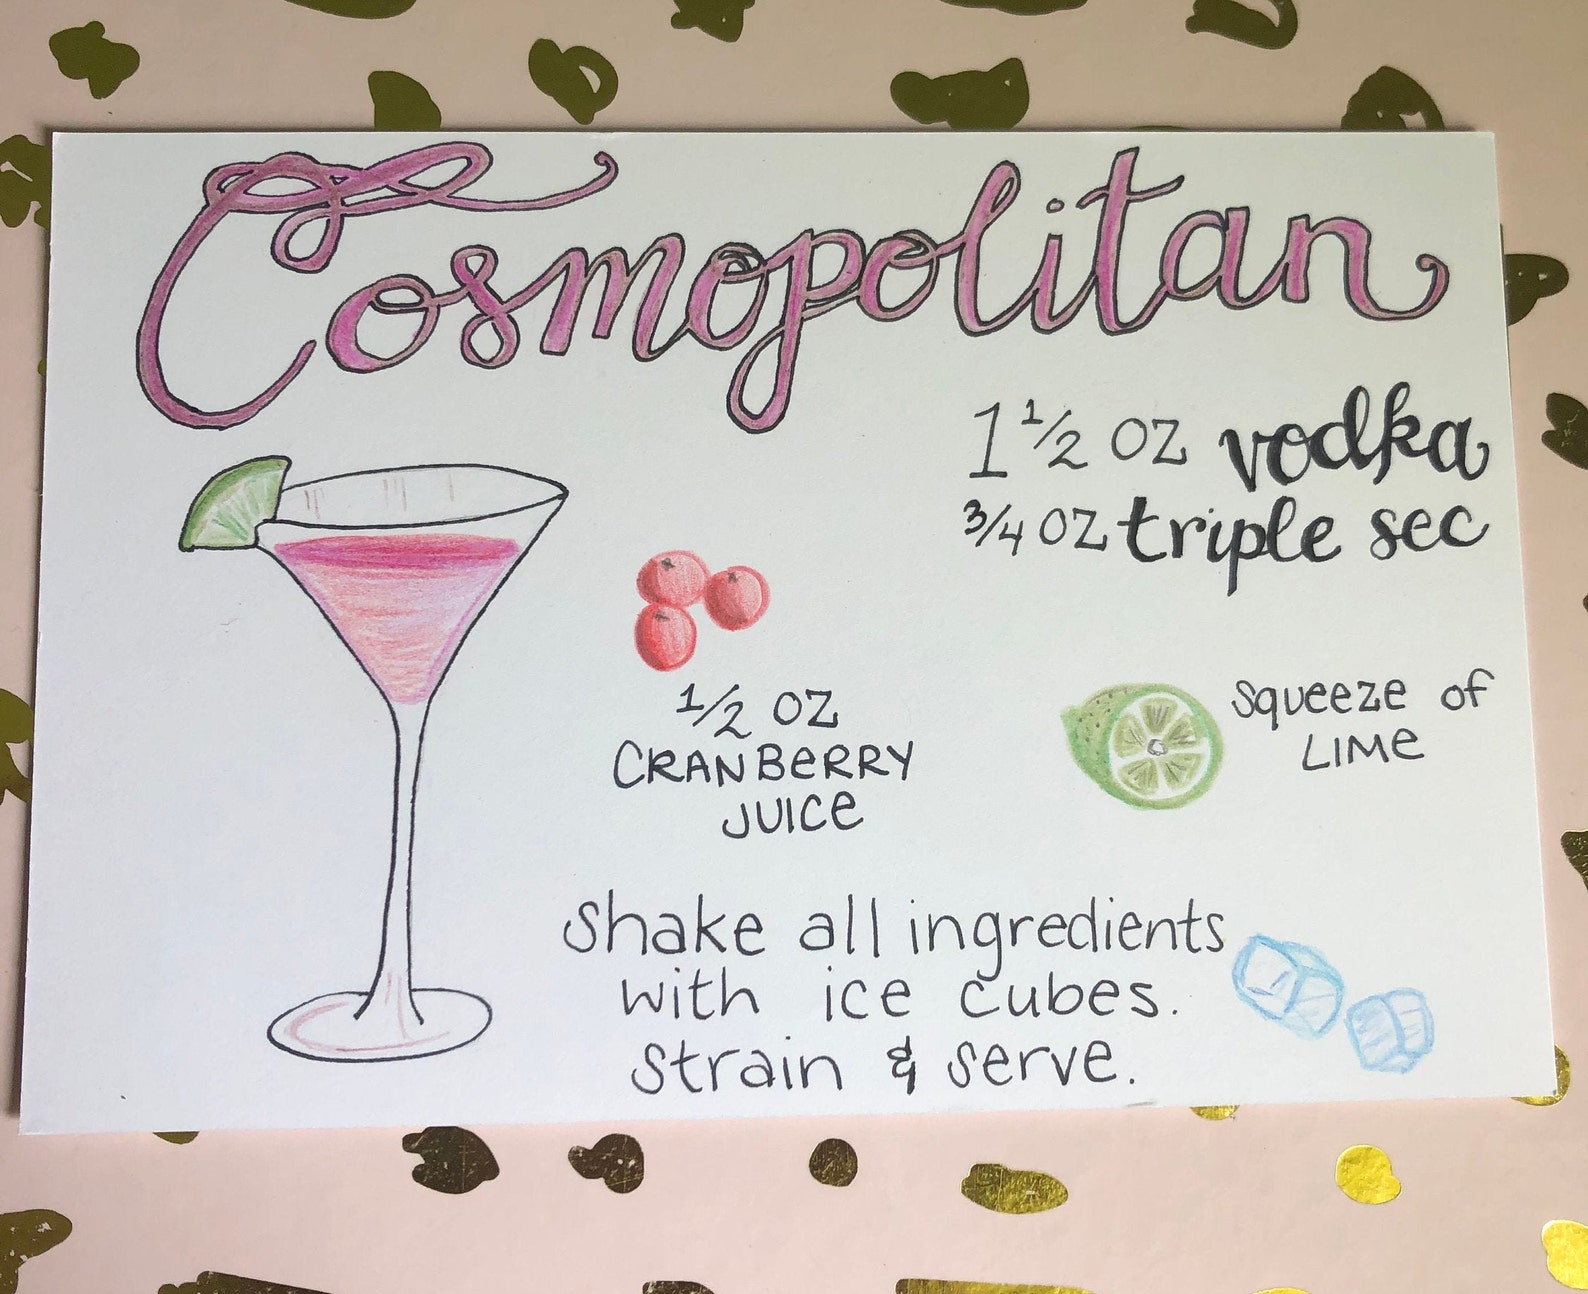 Cosmopolitan
1 1/2 oz vodka
3/4 oz triple sec
1/2 oz
CRANBeRRY
JUICe
squeeze of
LIMe
shake all ingredients
with ice cubes.
strain & serve.